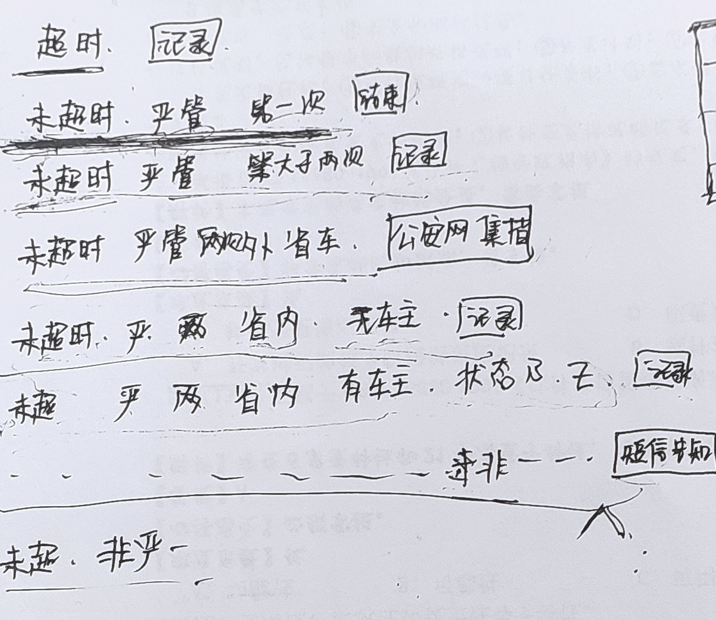 超时. 记录.
未超时. 严管 第一次 结束.
未超时 严管 第大于两次 记录
未超时 严管 两次 外省车. 公安网集指
未超时. 严. 两 省内. 无车主. 记录
未超 严 两 省内 有车主. 状态 B. E. 记录
非 短信告知
未超. 非严